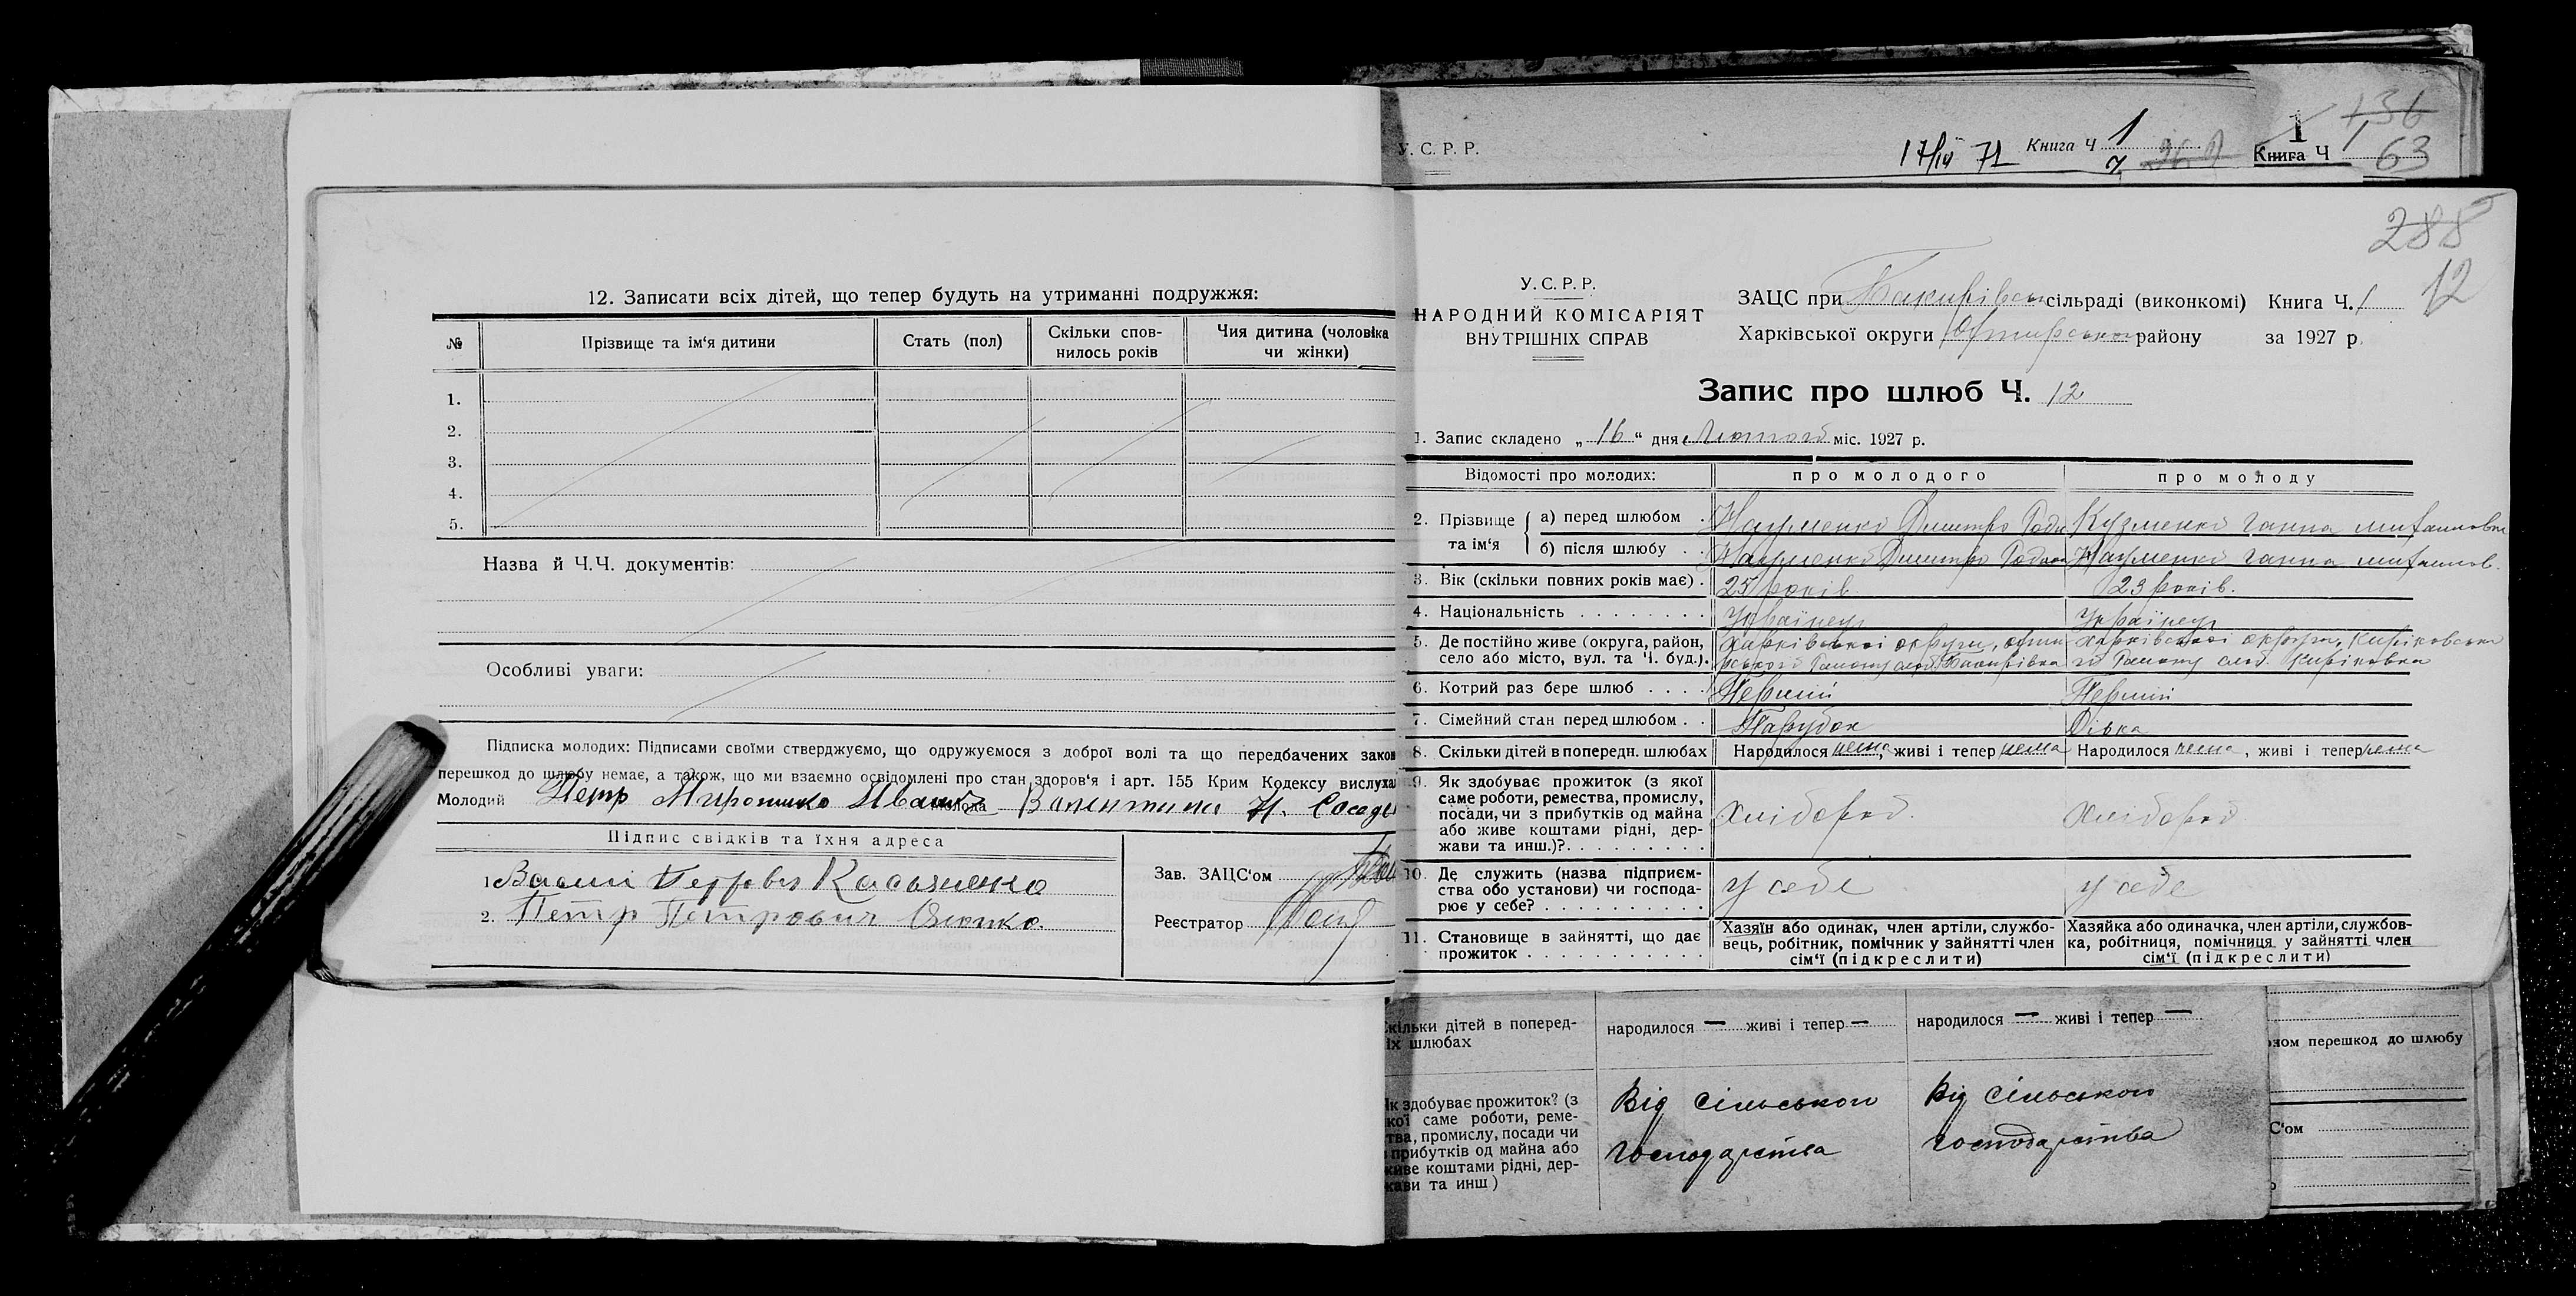 12. Записати всіх дітей, що тепер будуть на утриманні подружжя:
№ Прізвище та ім'я дитини Стать (пол) Скільки спов-нилось років Чия дитина (чоловіка чи жінки)
1.
2.
3.
4.
5.
Назва й Ч.Ч. документів:
Особливі уваги:
Підписка молодих: Підписами своїми стверджуємо, що одружуємося з доброї волі та що передбачених закон
перешкод до шлюбу немає, а також, що ми взаємно освідомлені про стан здоров'я і арт. 155 Крим Кодексу вислуха
Молодий Петр Мирошнико Молода Валентина Н.
Підпис свідків та їхня адреса
1 Касьяненко
2. Петр Петрович
Зав. ЗАЦС'ом
Реєстратор
У. С. Р. Р.
17/IV 71 Книга Ч 1
7
1 136
Книга Ч 1 63
285
12
У. С. Р. Р.
НАРОДНИЙ КОМІСАРІЯТ
ВНУТРІШНІХ СПРАВ
ЗАЦС при Бакирівськ сільраді (виконкомі) Книга Ч. 1
Харківської округи Охтирського району за 1927 р.
Запис про шлюб Ч. 12
1. Запис складено „ 16 “ дня Лютого міс. 1927 р.
Відомості про молодих: про молодого про молоду
2. Прізвище та ім'я
а) перед шлюбом . Науменко Дмитро Роди Кузменко Ганна
б) після шлюбу . . Науменко Дмитро Науменко Ганна
3. Вік (скільки повних років має) . 25 років 23 років.
4. Національність . . . . . . . . Українец Українец
5. Де постійно живе (округа, район, Харківської округи, Харківської округи,
село або місто, вул. та Ч. буд.). Району слоб. Бакирівка Району слоб. Кириковка
6. Котрий раз бере шлюб . . . . Перший Перший
7. Сімейний стан перед шлюбом . . Парубок Дівка
8. Скільки дітей в попередн. шлюбах Народилося нема, живі і тепер нема Народилося нема, живі і тепер нема
9. Як здобуває прожиток (з якої
саме роботи, ремества, промислу,
посади, чи з прибутків од майна Хлібороб. Хлібороб
або живе коштами рідні, дер-
жави та инш.)?. . . . . . . . .
10. Де служить (назва підприєм-
ства обо установи) чи господа- у себе у себе
рює у себе? . . . . . . . . . .
11. Становище в зайнятті, що дає
прожиток . . . . . . . . . . .
Хазяїн або одинак, член артіли, службо-
вець, робітник, помічник у зайнятті член
сім'ї (підкреслити)
Хазяйка або одиначка, член артіли, службов-
ка, робітниця, помічниця у зайнятті член
сім'ї (підкреслити)
кільки дітей в поперед-
іх шлюбах
народилося — живі і тепер — народилося — живі і тепер —
ном перешкод до шлюбу
Як здобуває прожиток? (з
кої саме роботи, реме-
тва, промислу, посади чи
прибутків од майна або
живе коштами рідні, дер-
жави та инш)
Від сільського
господарства
Від сільського
господарства
С'ом